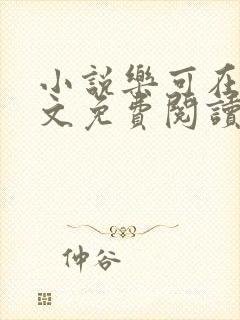 小說樂可在
文免費閱讀
仲谷